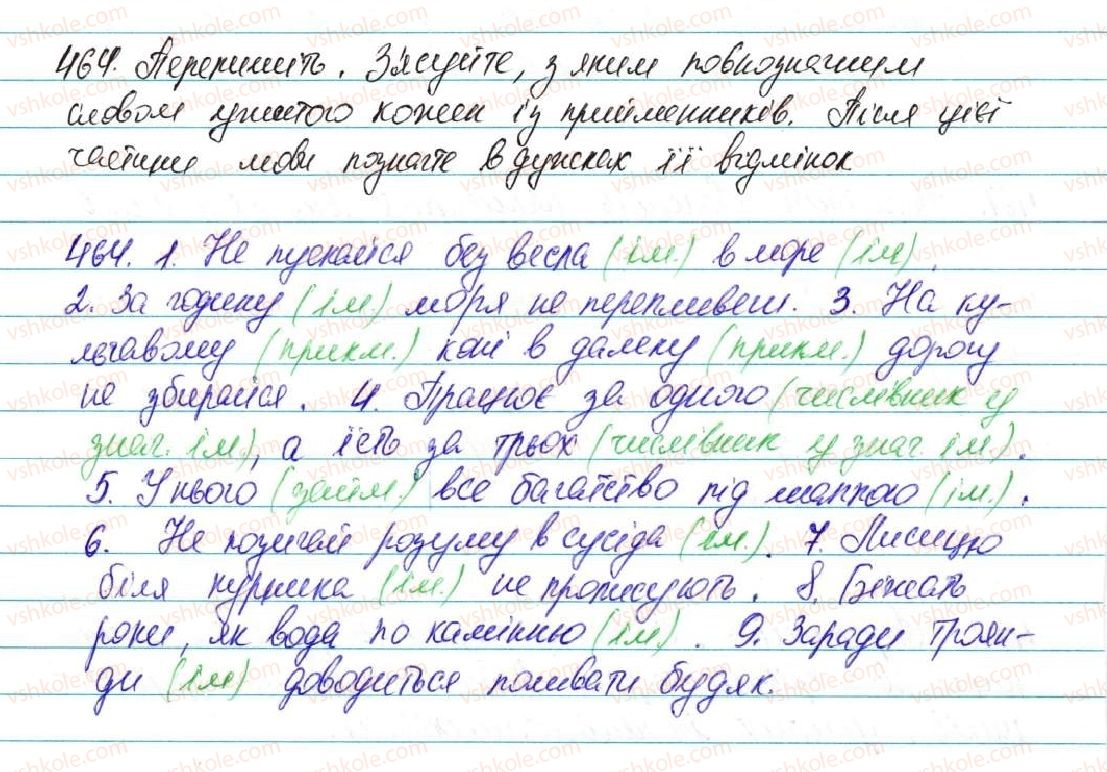 464. Перепишіть. З'ясуйте, з яким повнозначним
словом ужитого кожен із прийменників. Після цієї
частини мови позначте в дужках її відмінок
464. 1. Не пускайся без весла (ім.) в море (ім).
2. За годину (ім.) моря не перепливеш. 3. На ку-
льгавому (прикм.) коні в далеку (прикм.) дорогу
не збирайся. 4. Працює за одного (числівник у
знач. ім), а їсть за трьох (числівник у знач. ім.).
5. У нього (займ.) все багатство під шапкою (ім.).
6. Не позичай розуму в сусіда (ім.). 7. Лисицю
біля курника (ім.) не прописують. 8. Біжать
роки, як вода по камінню (ім). 9. Заради троян-
ди (ім) доводиться поливати будяк.